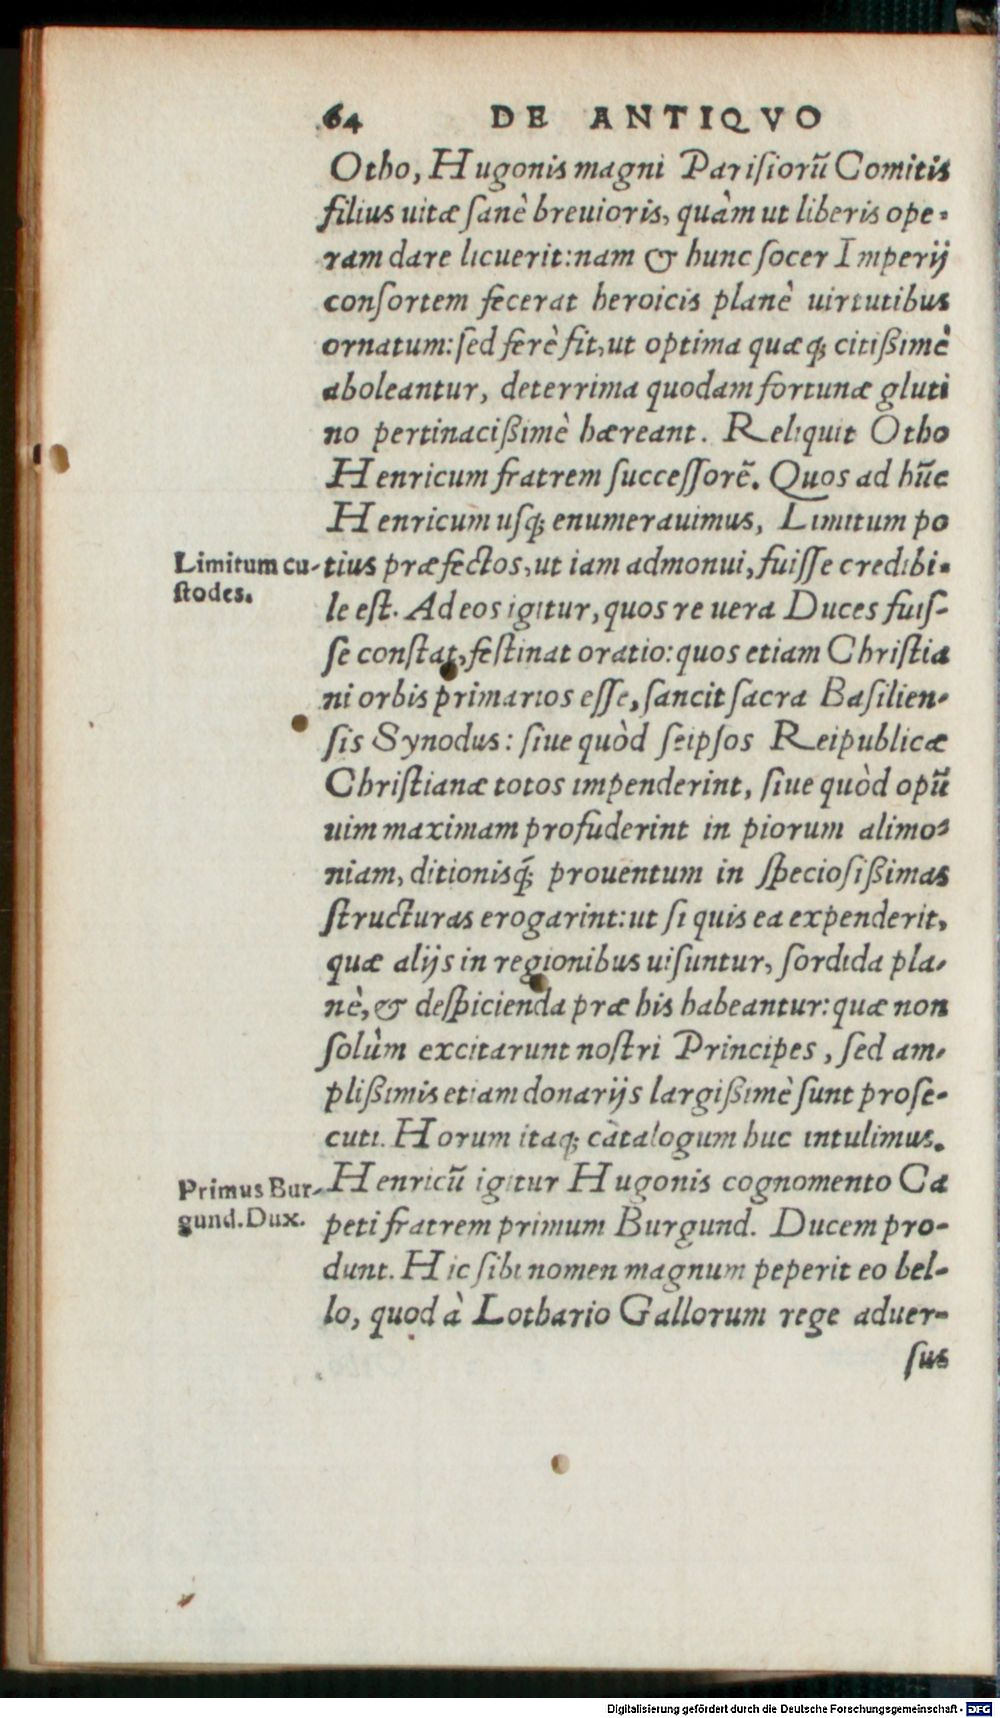 64 DE ANTIQVO
Otho, Hugonis magni Parisiorũ Comitis
filius uitæ sanè breuioris, quàm ut liberis ope-
ram dare licuerit: nam & hunc socer Imperij
consortem fecerat heroicis planè uirtutibus
ornatum: sed ferè fit, ut optima quæq; citißimè
aboleantur, deterrima quodam fortunæ gluti
no pertinacißimè hæreant. Reliquit Otho
Henricum fratrem successorẽ. Quos ad hũc
Henricum usq; enumerauimus, Limitum po
Limitum cu-
stodes.
tius præfectos, ut iam admonui, fuisse credibi-
le est. Ad eos igitur, quos re uera Duces fuis-
se constat, festinat oratio: quos etiam Christia
ni orbis primarios esse, sancit sacra Basilien-
sis Synodus: siue quòd seipsos Reipublicæ
Christianæ totos impenderint, siue quòd opũ
uim maximam profuderint in piorum alimo-
niam, ditionisq́; prouentum in speciosißimas
structuras erogarint: ut si quis ea expenderit,
quæ alijs in regionibus uisuntur, sordida pla-
nè, & despicienda præ his habeantur: quæ non
solùm excitarunt nostri Principes, sed am-
plißimis etiam donarijs largißimè sunt prose-
cuti. Horum itaq; catalogum huc intulimus.
Primus Bur-
gund. Dux.
Henricũ igitur Hugonis cognomento Ca
peti fratrem primum Burgund. Ducem pro-
dunt. Hic sibi nomen magnum peperit eo bel-
lo, quod à Lothario Gallorum rege aduer-
sus
Digitalisierung gefördert durch die Deutsche Forschungsgemeinschaft - DFG